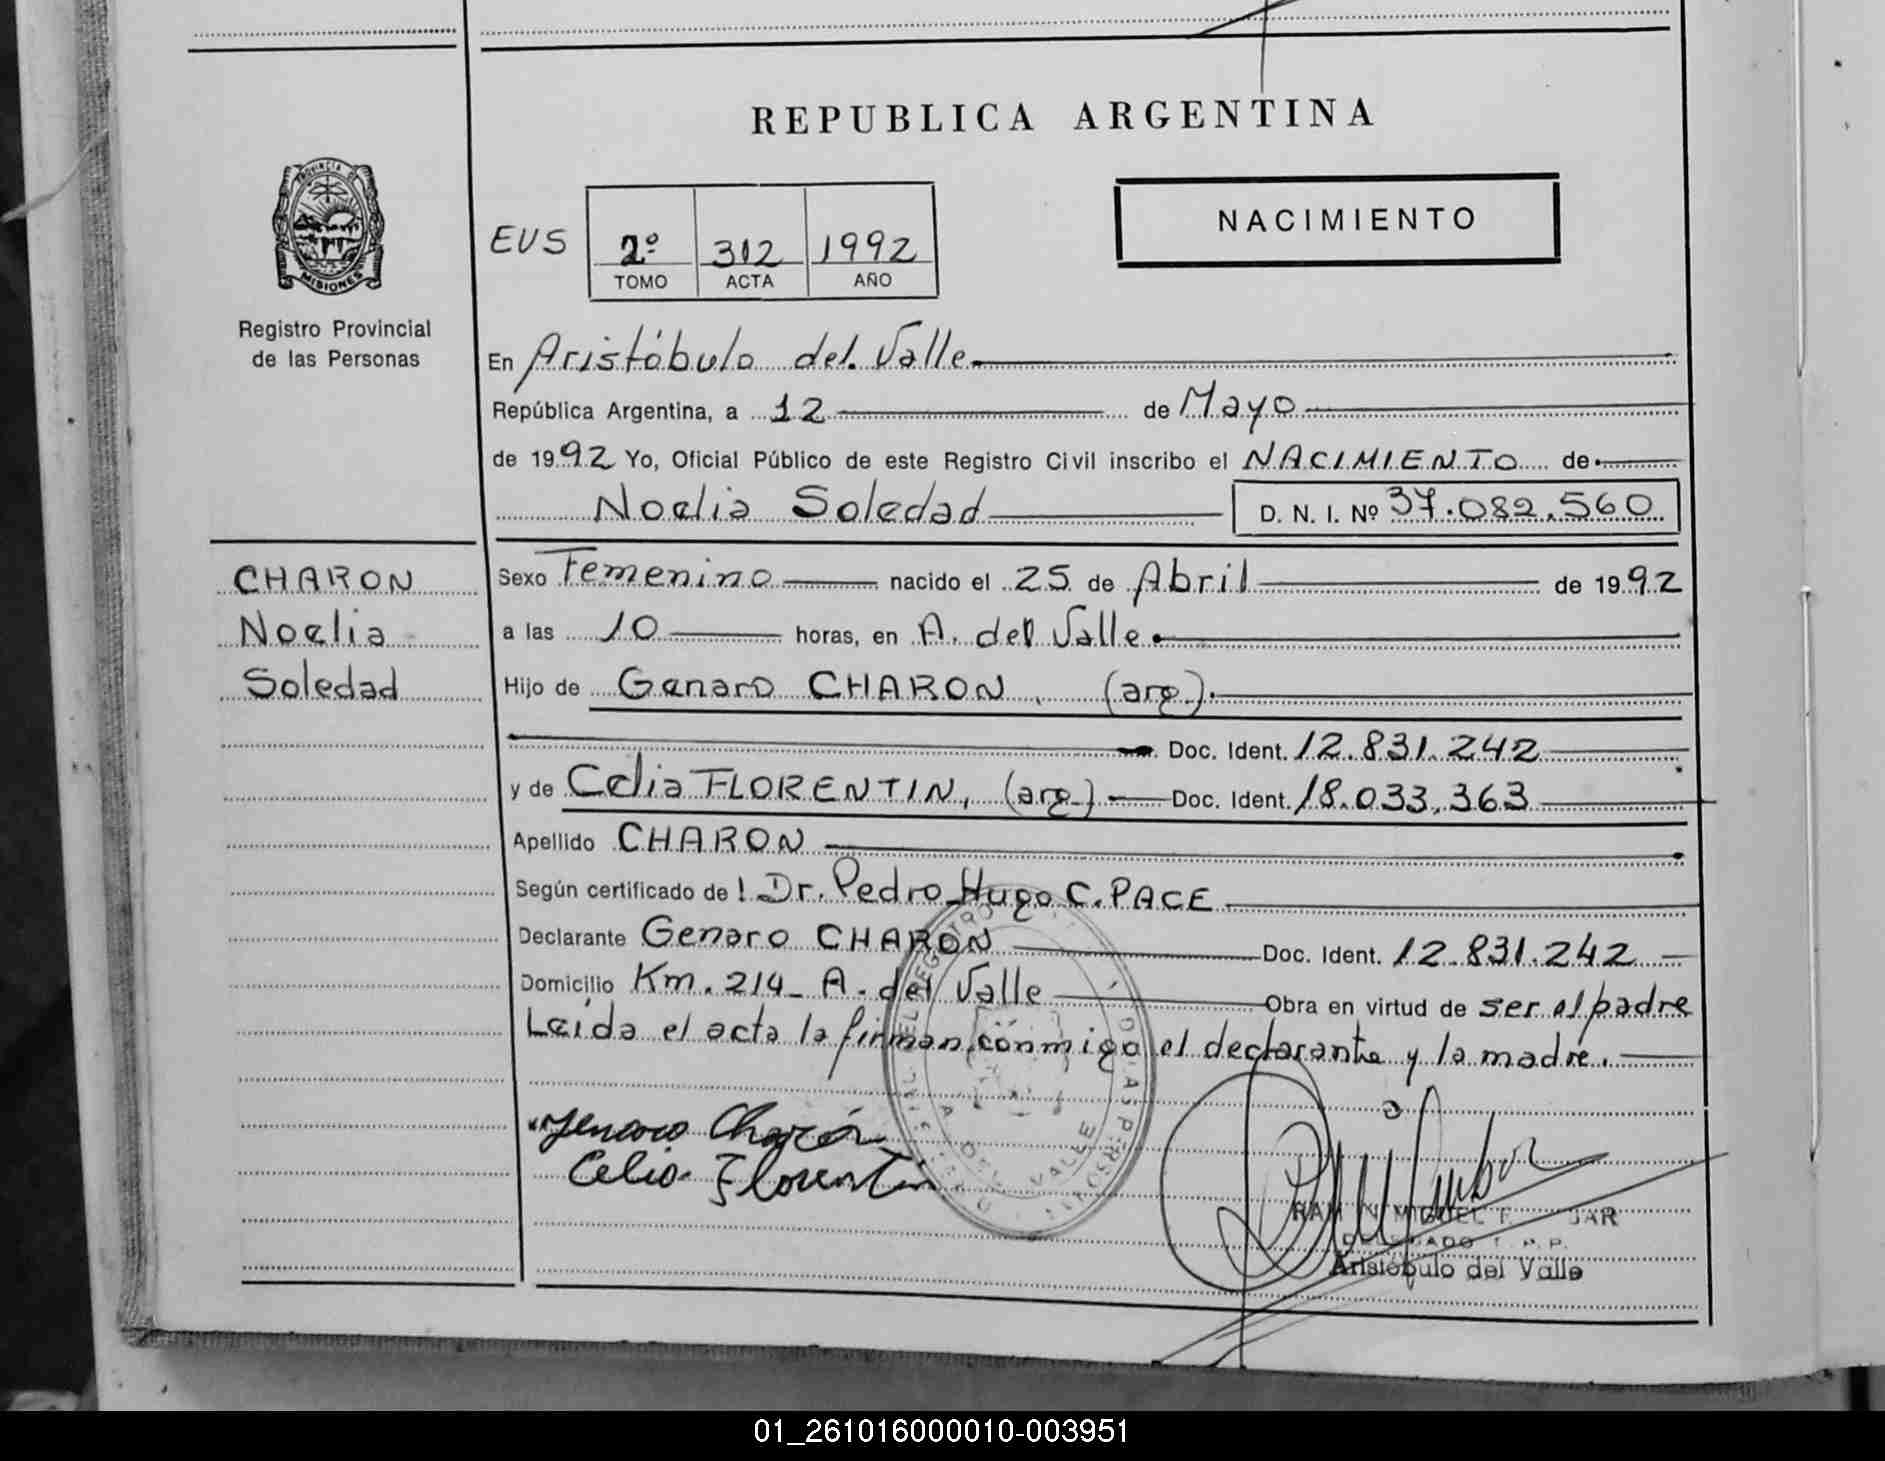 REPUBLICA ARGENTINA
PROVINCIA DE
MISIONES
Registro Provincial
de las Personas
EUS
2º 312 1992
TOMO ACTA AÑO
NACIMIENTO
En Aristóbulo del Valle
República Argentina, a 12 de Mayo
de 1992 Yo, Oficial Público de este Registro Civil inscribo el NACIMIENTO de
Noelia Soledad D. N. I. Nº 37.082.560
CHARON
Noelia
Soledad
Sexo Femenino nacido el 25 de Abril de 1992
a las 10 horas, en A. del Valle
Hijo de Genaro CHARON, (arg.).
Doc. Ident. 12.831.242
y de Celia FLORENTIN, (arg.) Doc. Ident. 18.033.363
Apellido CHARON
Según certificado de ! Dr. Pedro Hugo C. PACE
Declarante Genaro CHARON Doc. Ident. 12.831.242
Domicilio Km. 214 - A. del Valle Obra en virtud de ser el padre
Leída el acta la firman conmigo el declarante y la madre.
Genaro Charón
Celia Florentin
MIGUEL
Aristóbulo del Valle
01_261016000010-003951